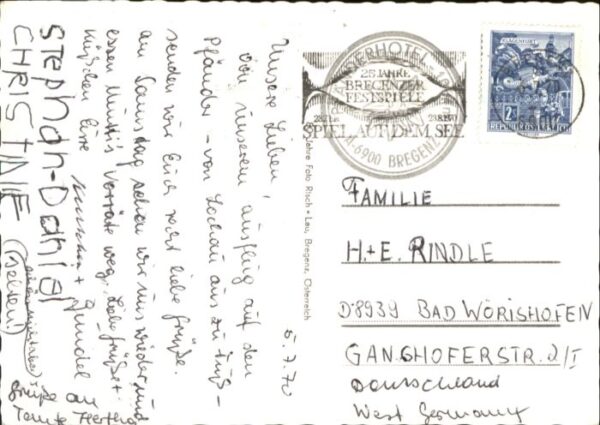 5.7.70
Unsere Lieben,
von unserem Ausflug auf den
Pfänder - von Lochau aus zu Fuß -
senden wir Euch recht liebe Grüße.
am Samstag sehen wir uns wieder und
essen Vorräte weg. Liebe Grüße +
Küßchen Eure
+ Gundel
STEPHAN-DANIEL
CHRISTINE
Grüße an
Tante Hertha
PFÄNDERHOTEL
25 JAHRE
BREGENZER
FESTSPIELE
23.8.1970
SPIEL AUF DEM SEE
A-6900 BREGENZ
KLAGENFURT
2
REPUBLIK ÖSTERREICH
Foto Risch-Lau, Bregenz, Österreich
FAMILIE
H.+E. RINDLE
D8939 BAD WÖRISHOFEN
GANGHOFERSTR. 2/I
Deutschland
West Germany